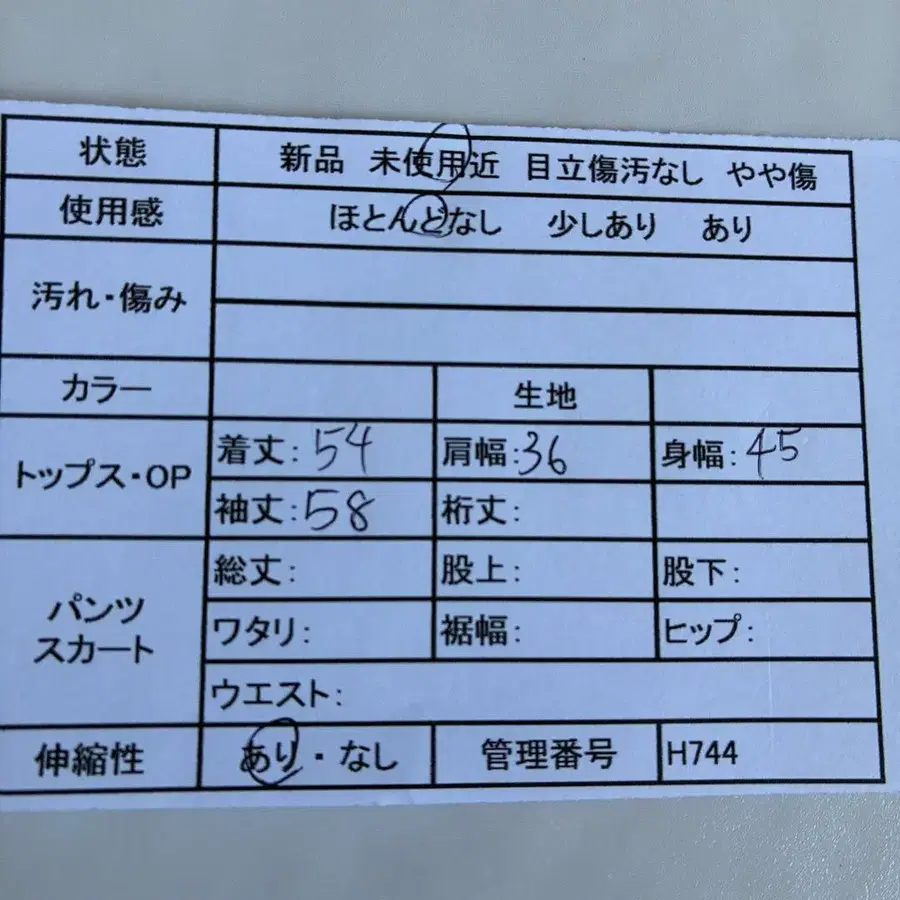 状態 新品 未使用近 目立傷汚なし やや傷
使用感 ほとんどなし 少しあり あり
汚れ・傷み
カラー 生地
トップス・OP
着丈:54 肩幅:36 身幅:45
袖丈:58 裄丈:
パンツ
スカート
総丈: 股上: 股下:
ワタリ: 裾幅: ヒップ:
ウエスト:
伸縮性 あり・なし 管理番号 H744